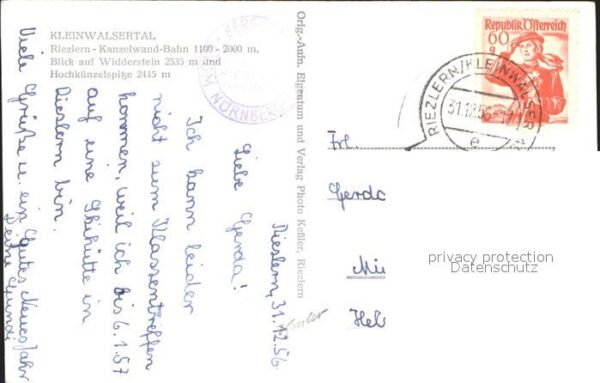 KLEINWALSERTAL
Riezlern - Kanzelwand-Bahn 1100 - 2000 m,
Blick auf Widderstein 2535 m und
Hochkünzelspitze 2415 m
NÜRNBERG
Orig.-Aufn. Eigentum und Verlag Photo Keßler, Riezlern
Republik Österreich
60
g
RIEZLERN/KLEINWALSER
31.12.56
e
Riezlern, 31.12.56
Liebe Gerda!
Ich kann leider
nicht zum Klassentreffen
kommen, weil ich bis 6.1.57
auf eine Skihütte in
Riezlern bin.
Viele Grüße u. ein Gutes Neues Jahr
Deine Gundi
Frl.
Gerda
privacy protection
Datenschutz